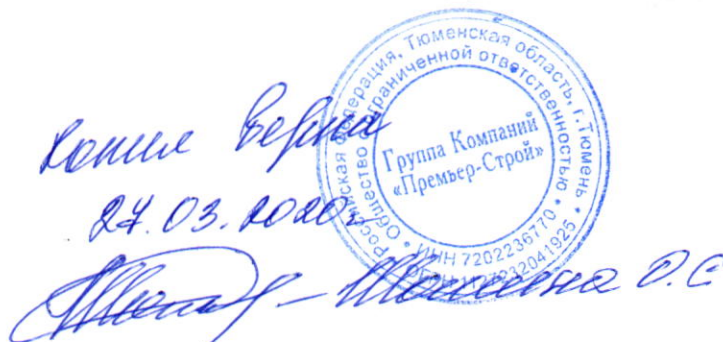 Копия верна
27.03.2020г
О.С
Российская Федерация, Тюменская область, г.Тюмень
Общество с ограниченной ответственностью
Группа Компаний
«Премьер-Строй»
ИНН 7202236770
ОГРН